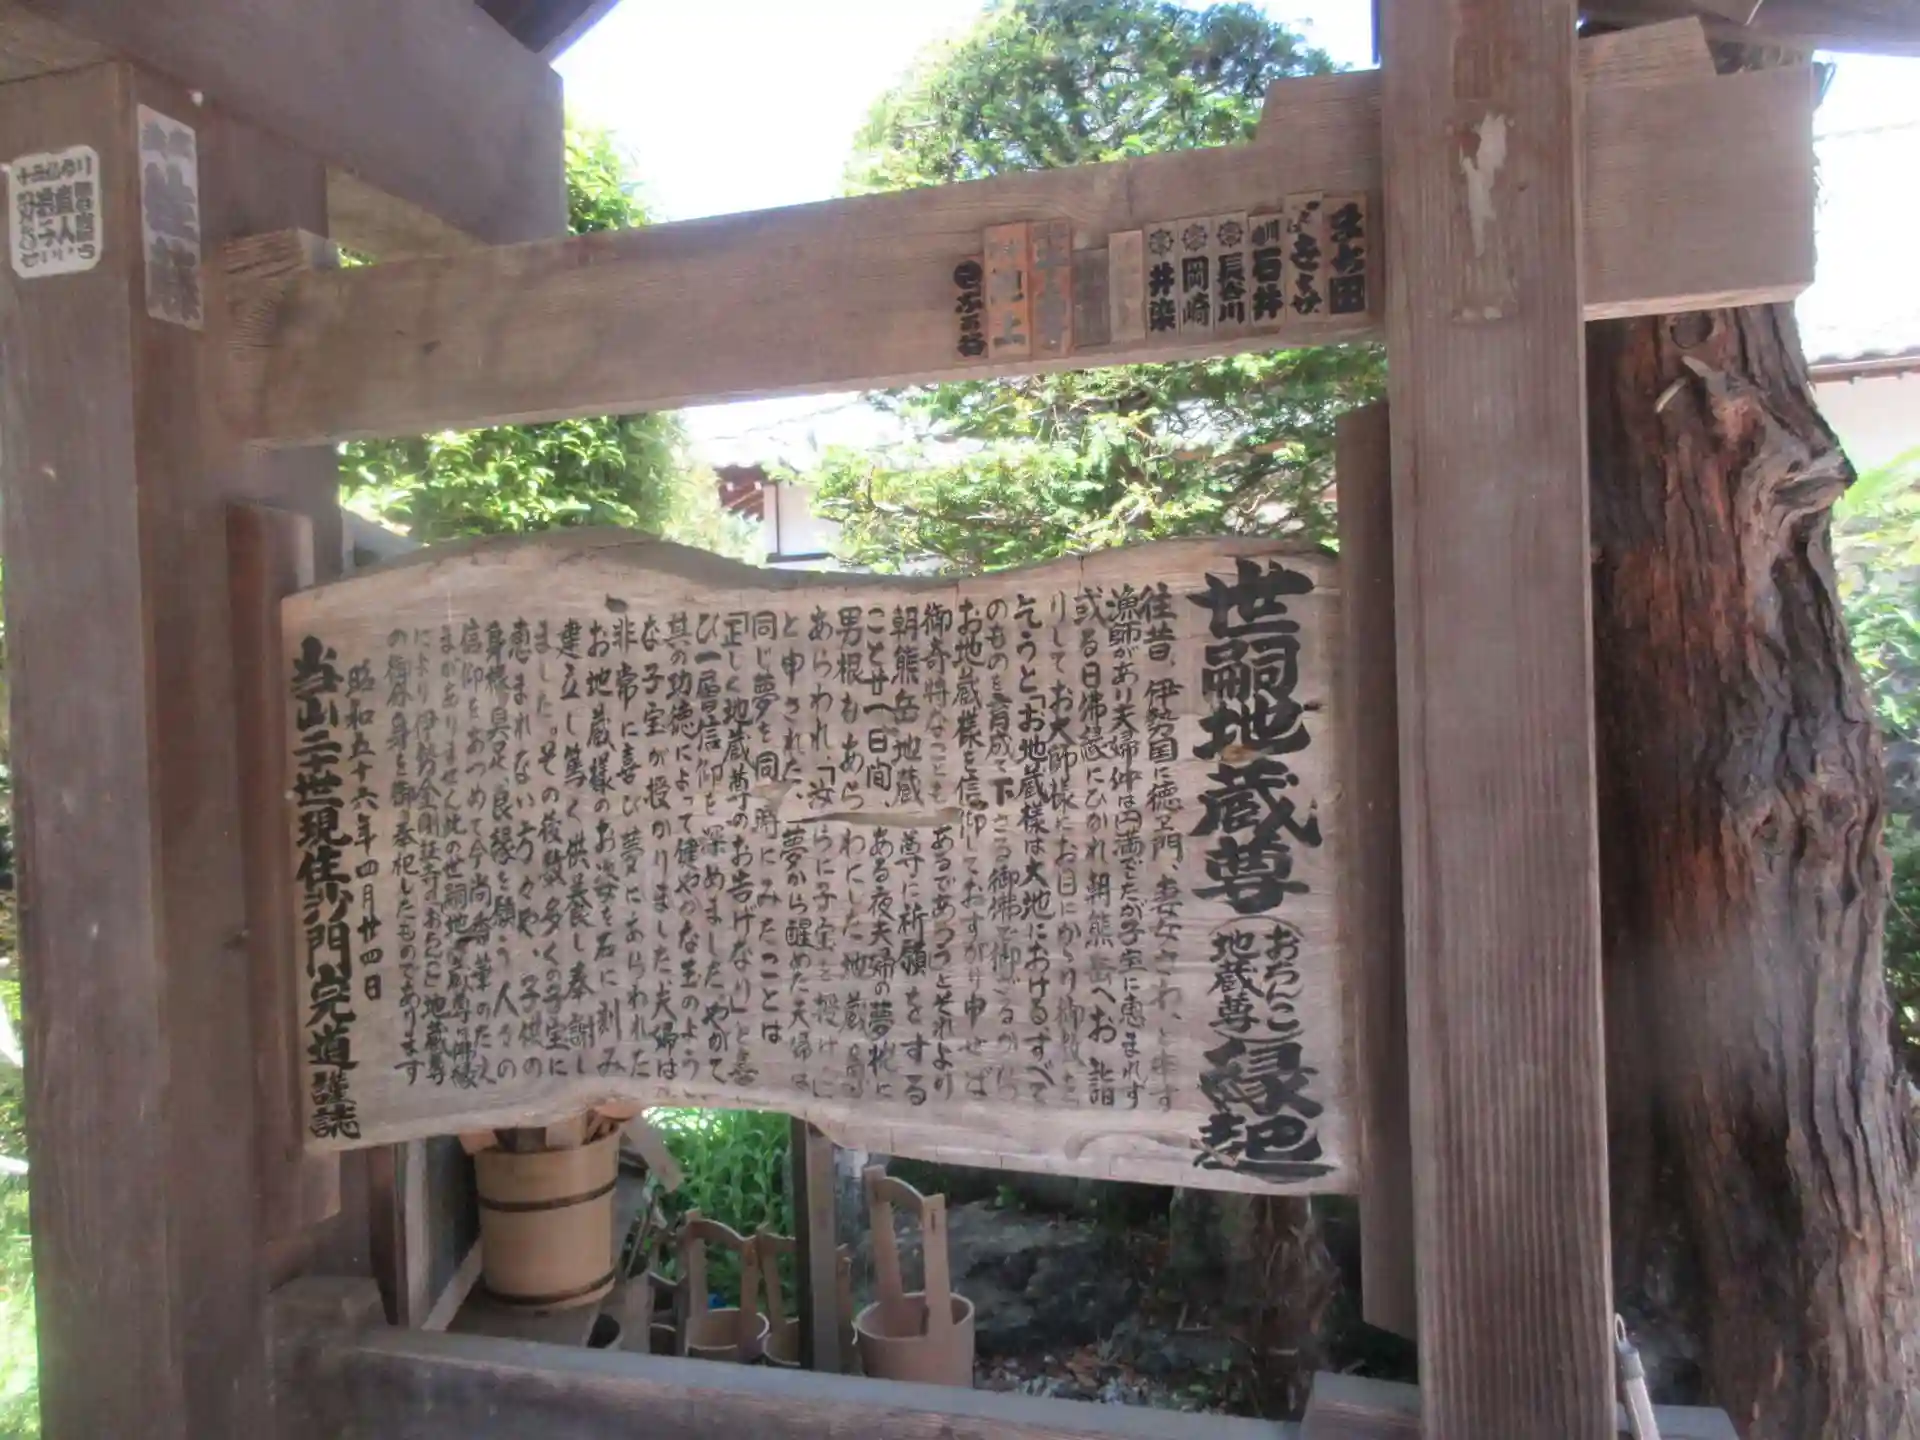 世嗣地蔵尊(おちんこ地蔵尊)縁起
往昔、伊勢国に徳ヱ門、妻女さわ、と申す
漁師があり夫婦仲は円満でたが子宝に恵まれず
或る日佛縁にひかれ朝熊岳へお詣
りしてお大師様にお目にかゝり御教えを
乞うと「お地蔵様は大地におけるすべて
のものを育成て下さる御佛で御ざるから
お地蔵様を信仰しておすがり申せば
御奇特なこともあるであろうとそれより
朝熊岳地蔵尊に祈願をする
こと廿一日間、ある夜夫婦の夢枕に
男根もあらわにした地蔵尊が
あらわれ、「汝らに子宝を授けに
と申された、夢から醒めた夫婦は
同じ夢を同時にみたことは
「正しく地蔵尊のお告げなり」と喜
び一層信仰を深めましたやがて
其の功徳によって健やかな玉のよう
な子宝が授かりました、夫婦は
非常に喜び夢にあらわれた
お地蔵様のお姿を石に刻み
建立し篤く供養し奉謝し
ました。その後数多くの子宝に
恵まれない方々や、子供の
身体具足、良縁を願う人々の
信仰をあつめて今尚香華のたえ
まがありません此の世嗣地蔵尊は佛縁
により伊勢金剛證寺のおちんこ地蔵尊
の御分身を御奉祀したものであります
昭和五十六年四月廿四日
当山二十世現住沙門完道謹誌
石井
長谷川
岡崎
井染